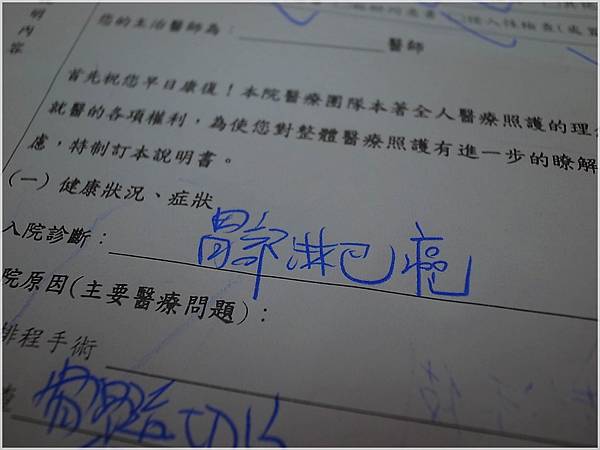 明內容
侵入性檢查(處置
您的主治醫師為：醫師
首先祝您早日康復！本院醫療團隊本著全人醫療照護的理念
就醫的各項權利，為使您對整體醫療照護有進一步的瞭解
慮，特制訂本說明書。
(一) 健康狀況、症狀
入院診斷：胃部淋巴癌
院原因(主要醫療問題)：
排程手術
查 骨髓切片